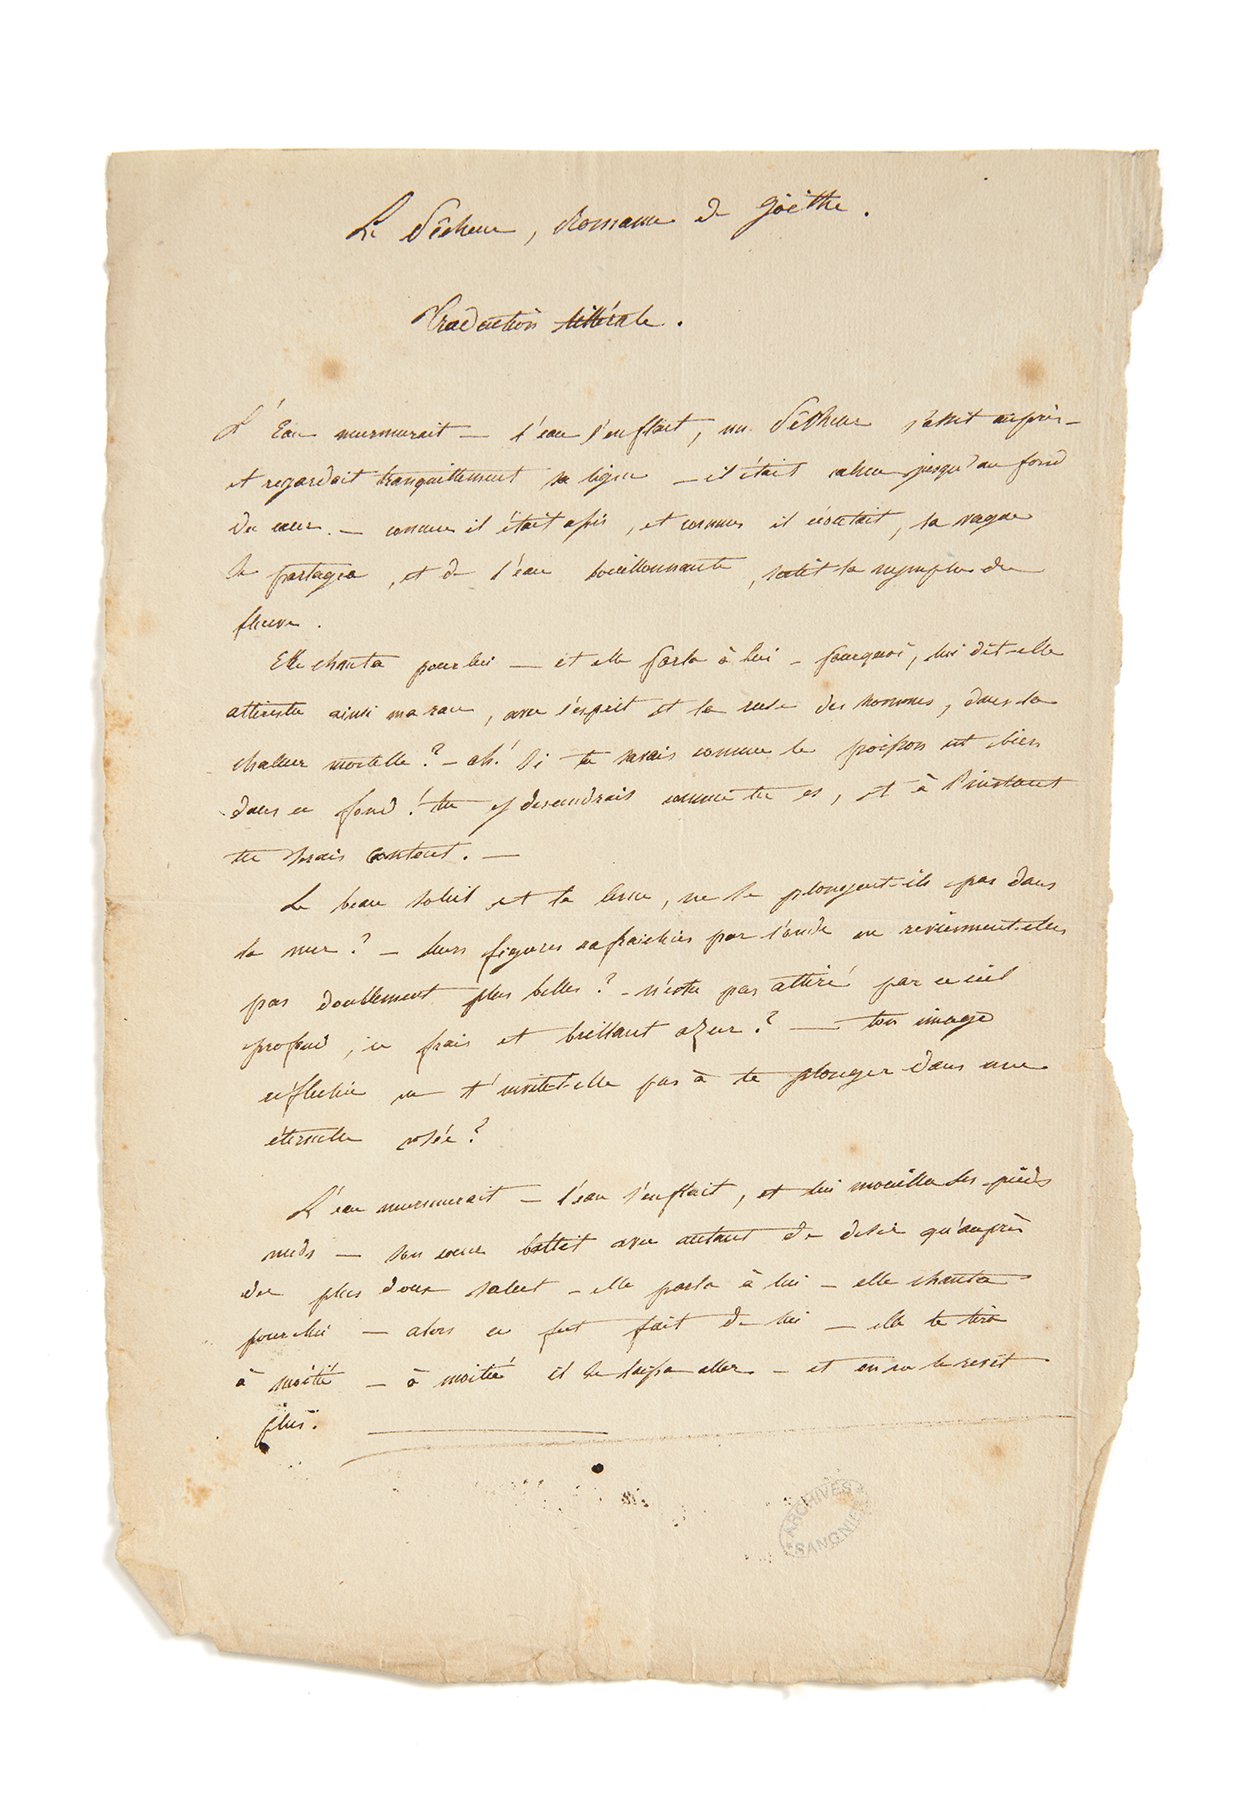 Le Pêcheur, Romance de Goëthe.
Traduction littérale.
L'Eau murmurait — l'eau s'enflait, un Pêcheur s'assit auprès —
et regardait tranquillement sa ligne — il était calme jusqu'au fond
du cœur. — comme il était assis, et comme il écoutait, la vague
se partagea, et de l'eau bouillonnante, sortit la nymphe du
fleuve.
Elle chanta pour lui — et elle parla à lui — pourquoi, lui dit-elle
attires-tu ainsi ma race, avec l'esprit et la ruse des hommes, dans la
chaleur mortelle? — ah! Si tu savais comme le poisson est bien
dans ce fond! tu y descendrais comme tu es, et à l'instant
tu serais content. —
Le beau soleil et la lune, ne se plongent-ils pas dans
la mer? — leurs figures rafraichies par l'onde ne reviennent-elles
pas doublement plus belles? — n'es-tu pas attiré par ce ciel
profond, ce frais et brillant azur? — ton image
réfléchie ne t'invite-t-elle pas à te plonger dans une
éternelle rosée?
L'eau murmurait — l'eau s'enflait, et lui mouilla les pieds
nuds — son cœur battit avec autant de désir qu'auprès
du plus doux salut — elle parla à lui — elle chanta
pour lui — alors ce fut fait de lui — elle le tira
à moitié — à moitié il se laissa aller — et on ne le revit
plus.
ARCHIVES
SANGNIER